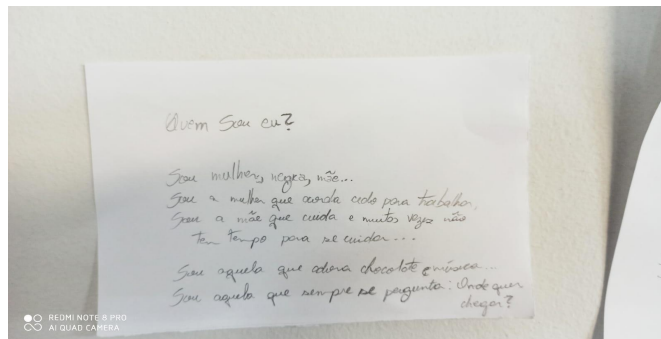 Quem Sou eu?
Sou mulher, negra, mãe...
Sou a mulher que acorda cedo para trabalhar,
Sou a mãe que cuida e muitas vezes não
tem tempo para se cuidar...
Sou aquela que adora chocolate e música...
Sou aquela que sempre se pergunta: Onde quer
chegar?
REDMI NOTE 8 PRO
AI QUAD CAMERA